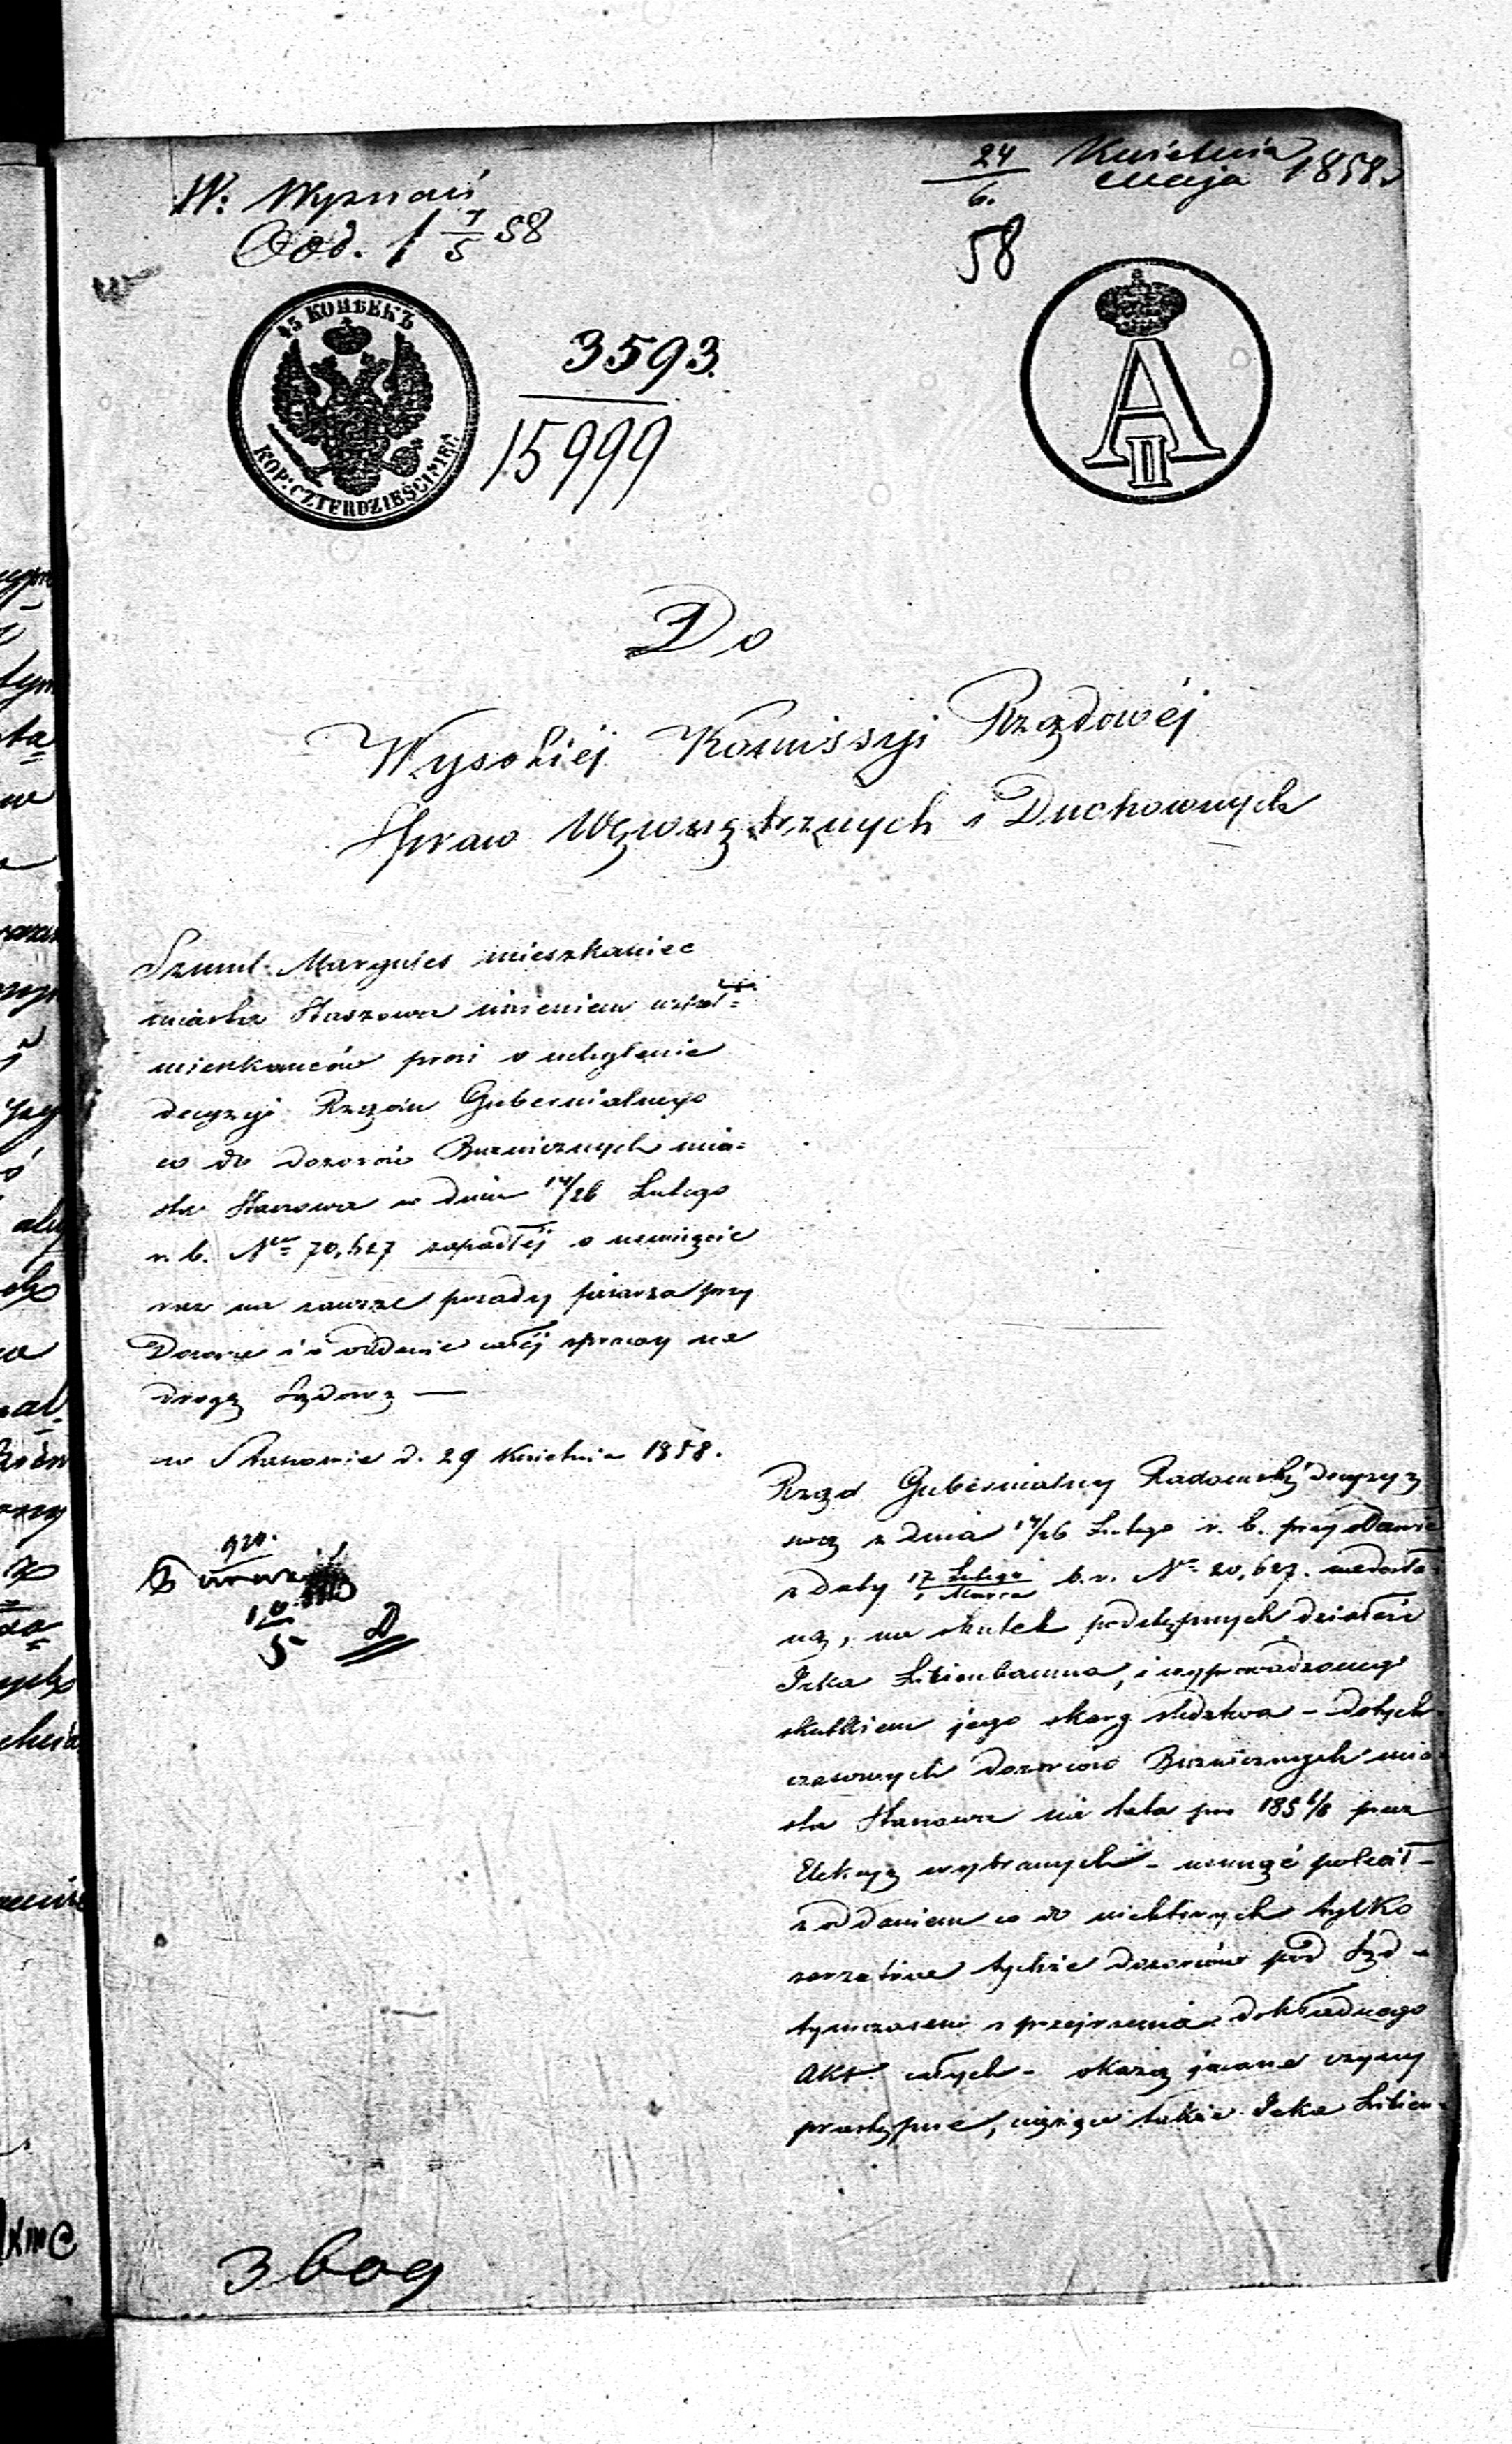 24/6. Kwietnia maja 1858
W: Wyznań
Odd. 1 7/5 58
58
45 КОПѢЕКЪ
KOP: CZTERDZIEŚCI PIĘĆ
A II
3593.
15999
Do
Wysokiéj Kommissyi Rządowéj
Spraw Wewnętrznych i Duchownych
Szmul Margules mieszkaniec
miasta Staszowa imieniem
mieszkańców prosi o uchylenie
decyzyi Rządu Gubernialnego
co do dozorców Bużnicznych mia=
sta Staszowa w dniu 14/26 Lutego
r. b. Nr 70,627 zapadłéj o usunięcie
raz na zawsze posady pisarza przy
Dozorze i o oddanie całéj sprawy na
drogę Sądową —
w Staszowie d. 29 Kwietnia 1858.
920.
10
5
Rząd Gubernialny Radomski decyzyą
swą z dnia 14/26 Lutego r. b. przy
z daty 17 Lutego / 1 Marca b. r. Nr 20,627.
ną, na skutek podstępnych działań
Icka Lilienbauma, i wyprowadzonego
skutkiem jego skarg śledztwa – dotych
czasowych dozorców Bużnicznych mia
sta Staszowa na lata 185 6/8 przez
Elekcyą wybranych – usunąć polecił –
z oddaniem co do niektórych tylko
zarzutów tychże dozorców pod Sąd –
tymczasem z przejrzenia dokładnego
Akt całych – okażą jawne czyny
przestępne, Icka Lilien-
3609